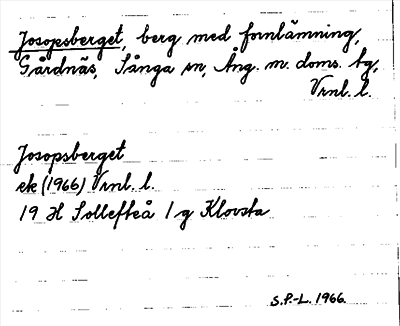 Josopsberget, berg med fornlämning,
Gårdnäs, Sånga sn, Ång. m. doms. bg,
Vrnl. l.
Josopsberget
ek (1966) Vrnl. l.
19 H Sollefteå 1 g Klovsta
S.P.-L. 1966.